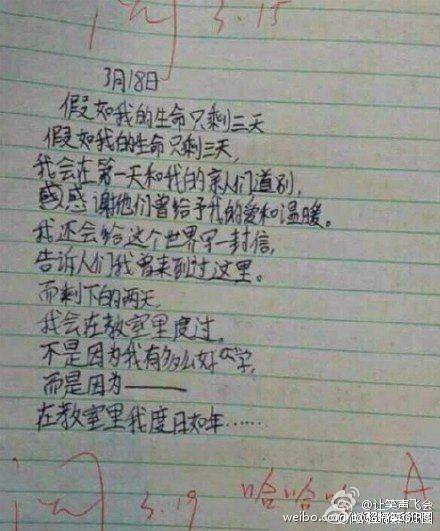 阅 3.15
3月18日
假如我的生命只剩三天
假如我的生命只剩三天,
我会在第一天和我的亲人们道别,
感谢他们曾给予我的爱和温暖。
我还会给这个世界写一封信,
告诉人们我曾来到过这里。
而剩下的两天
我会在教室里度过。
不是因为我有多么好学,
而是因为——
在教室里我度日如年……
阅 3.19 哈哈哈 A
@让笑声飞会
weibo.com/